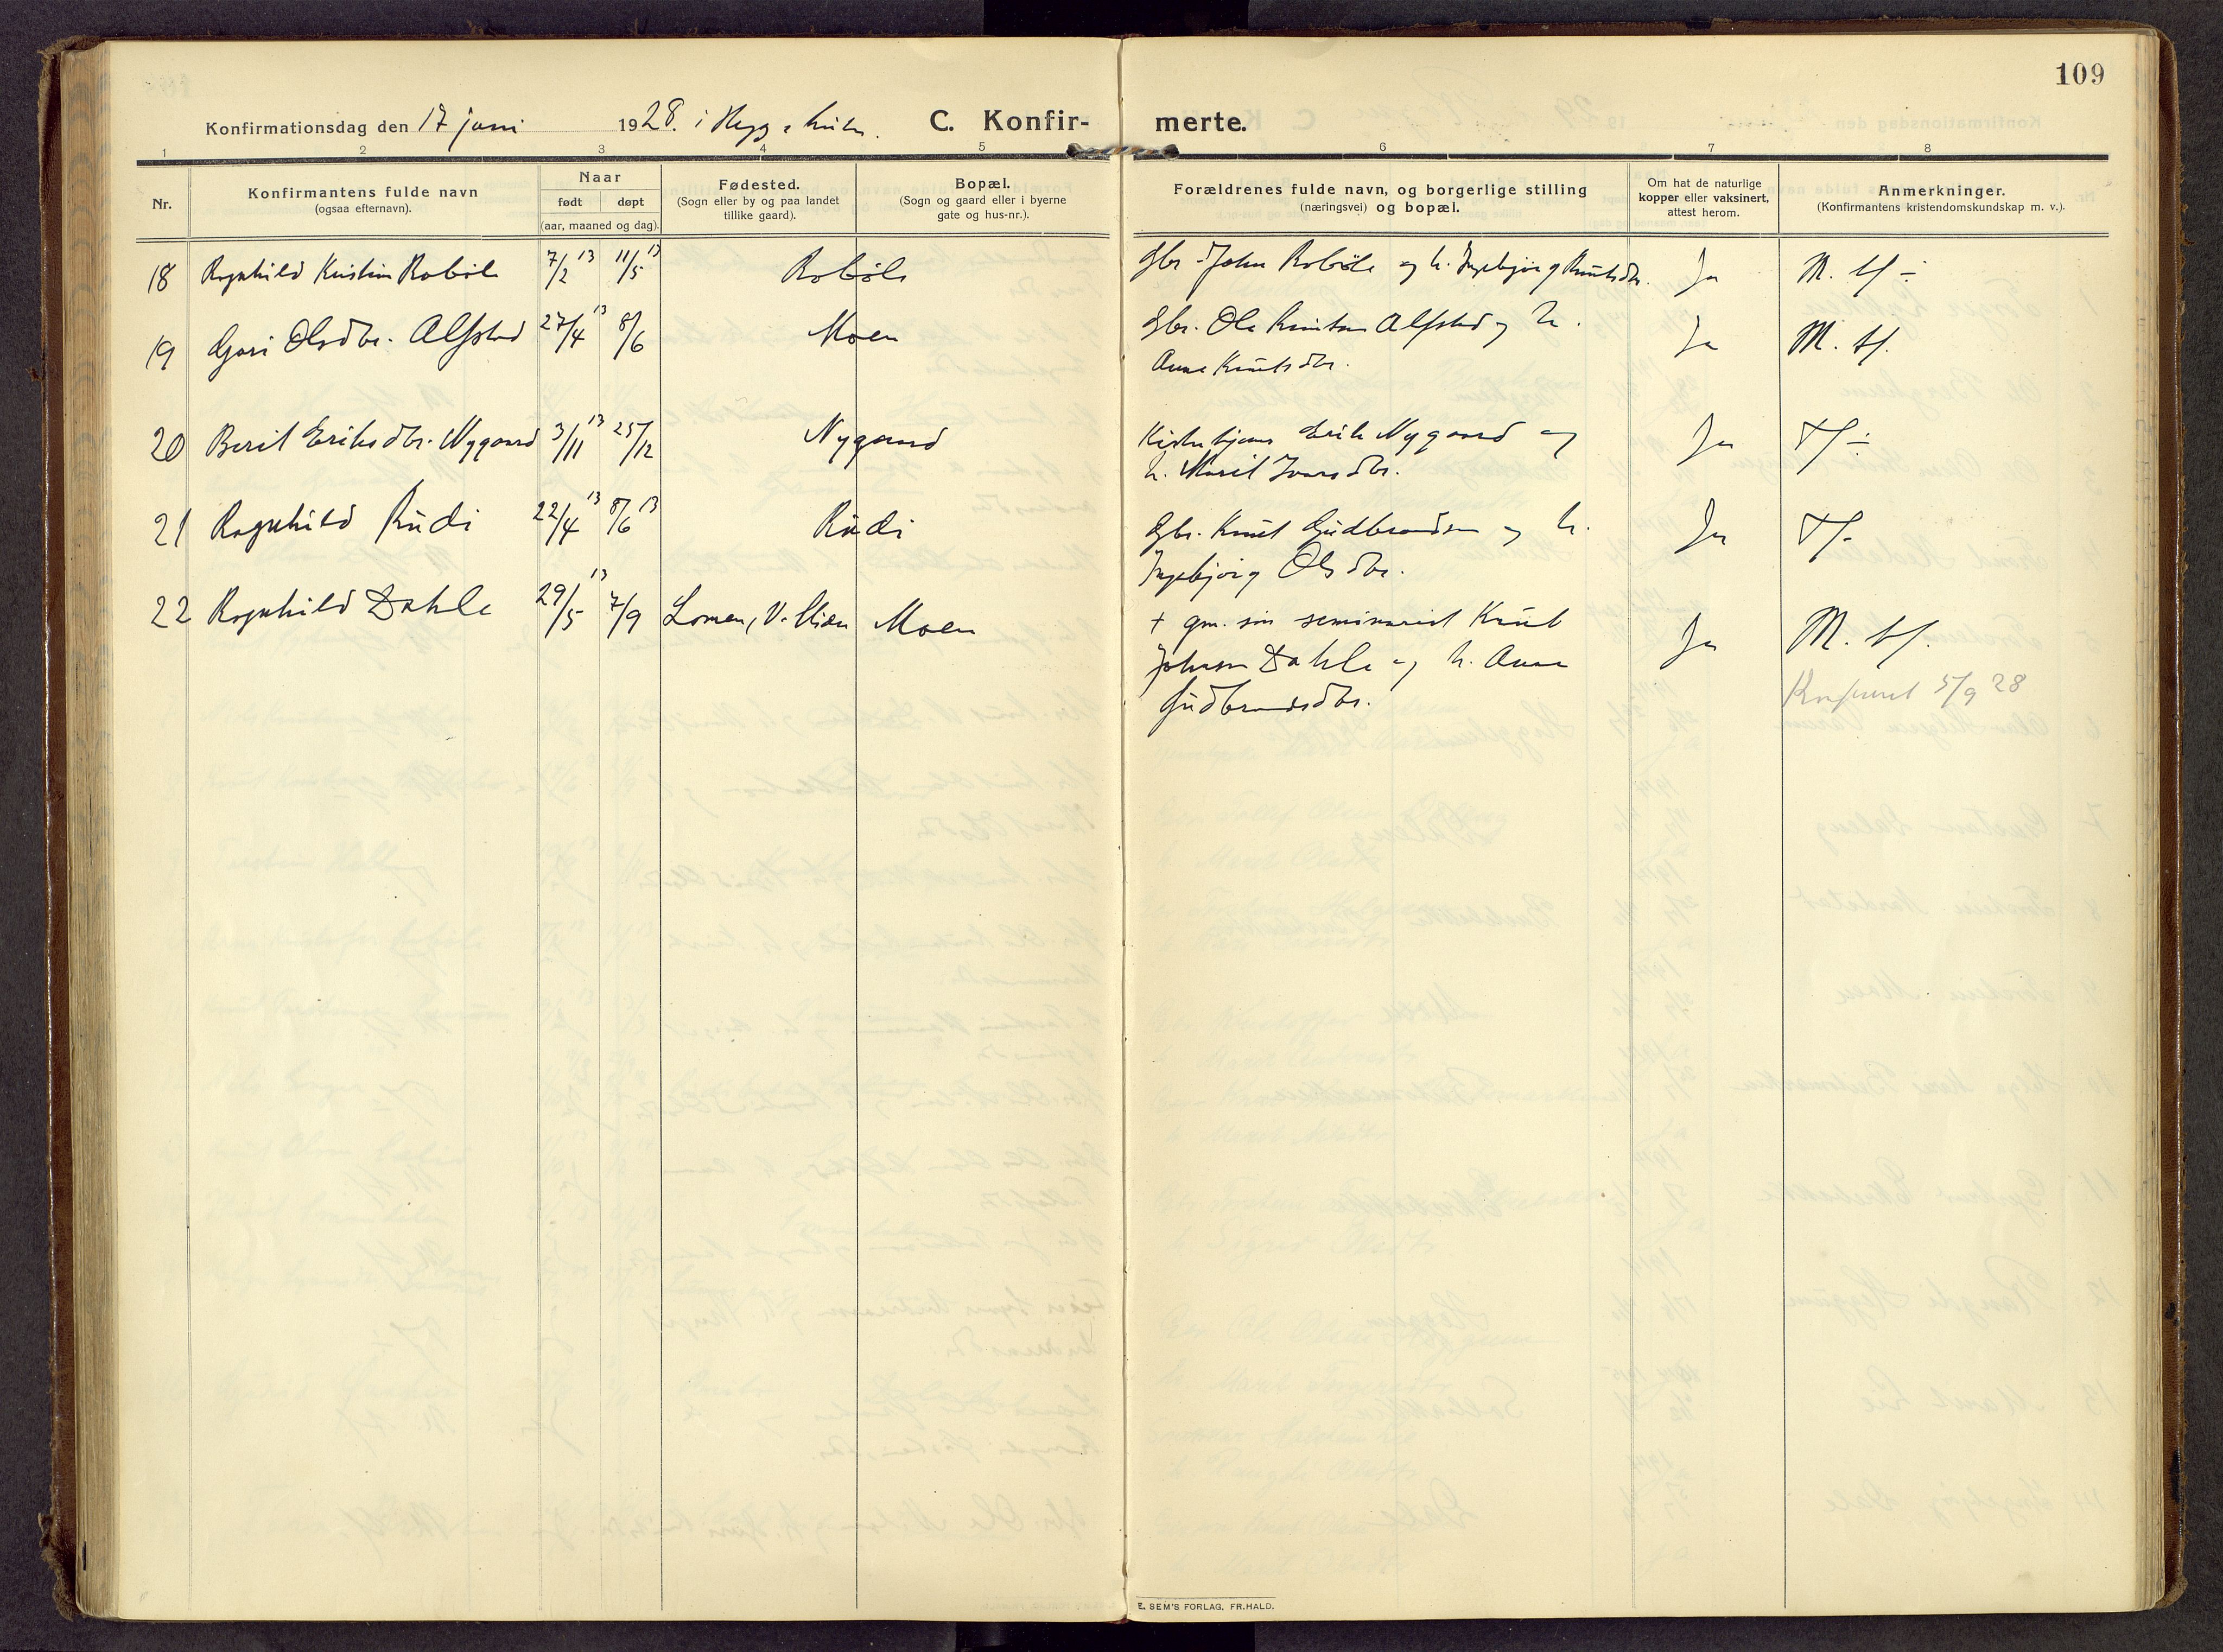 109
Konfirmationsdag den 17 juni 1928. i Hegge kirke. C. Konfir- merte.
1 2 3 4 5 6 7 8
Nr.
Konfirmantens fulde navn
(ogsaa efternavn).
Naar
født døpt
(aar, maaned og dag).
Fødested.
(Sogn eller by og paa landet
tillike gaard).
Bopæl.
(Sogn og gaard eller i byerne
gate og hus-nr.).
Forældrenes fulde navn, og borgerlige stilling
(næringsvei) og bopæl.
Om hat de naturlige
kopper eller vaksinert,
attest herom.
Anmerkninger.
(Konfirmantens kristendomskundskap m. v.).
18 Ragnhild Kristine Robøle 7/2 13 11/5 13 Robøle Gbr. John Robøle og h. Ingebjørg Knutsdtr. Ja M. tf ÷
19 Guri Olsdtr. Alfstad 27/4 13 8/6 Moen Gbr. Ole Knutsen Alfstad og h. Ja M. tf.
Anne Knutsdtr.
20 Berit Eriksdtr. Nygaard 3/11 13 25/12 Nygaard Erik Nygaard og Ja Tf ÷
h. Marit Ivarsdtr.
21 Ragnhild Rudi 22/4 13 8/6 13 Rudi Gbr. Knut Gudbrandsen og h. Ja Tf.
Ingebjørg Olsdtr.
22 Ragnhild Dahle 29/5 13 7/9 Lomen, V. Slidre Moen + gm. sin seminarist Knut Ja M. tf.
Johnsen Dahle og h. Anne
Gudbrandsdtr.
5/9 28
E. SEM'S FORLAG, FR.HALD.